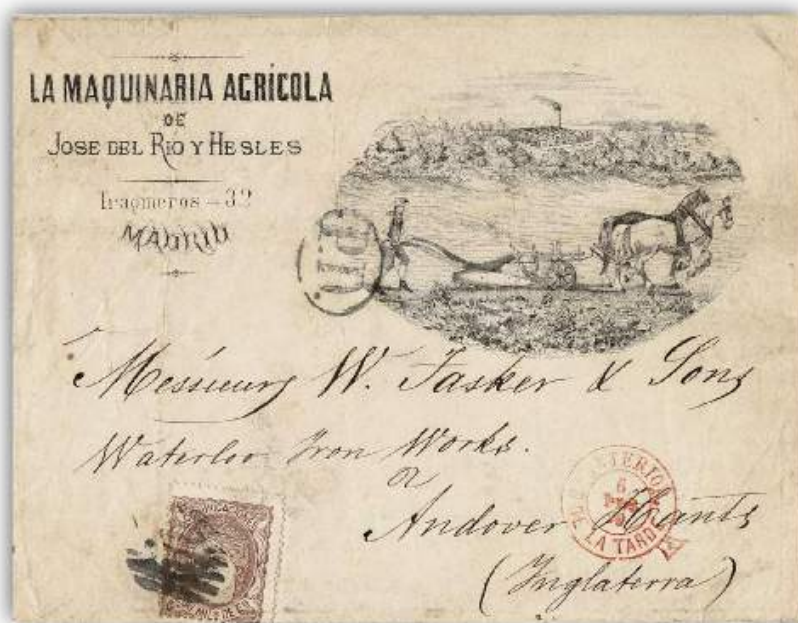 LA MAQUINARIA AGRÍCOLA
DE
JOSE DEL RIO Y HESLES
32
MADRID
P.D.
Messieurs W. Tasker & Sons
Waterloo Iron Works.
Andover Hants
(Inglaterra)
INTERIOR
6
DE LA TARDE